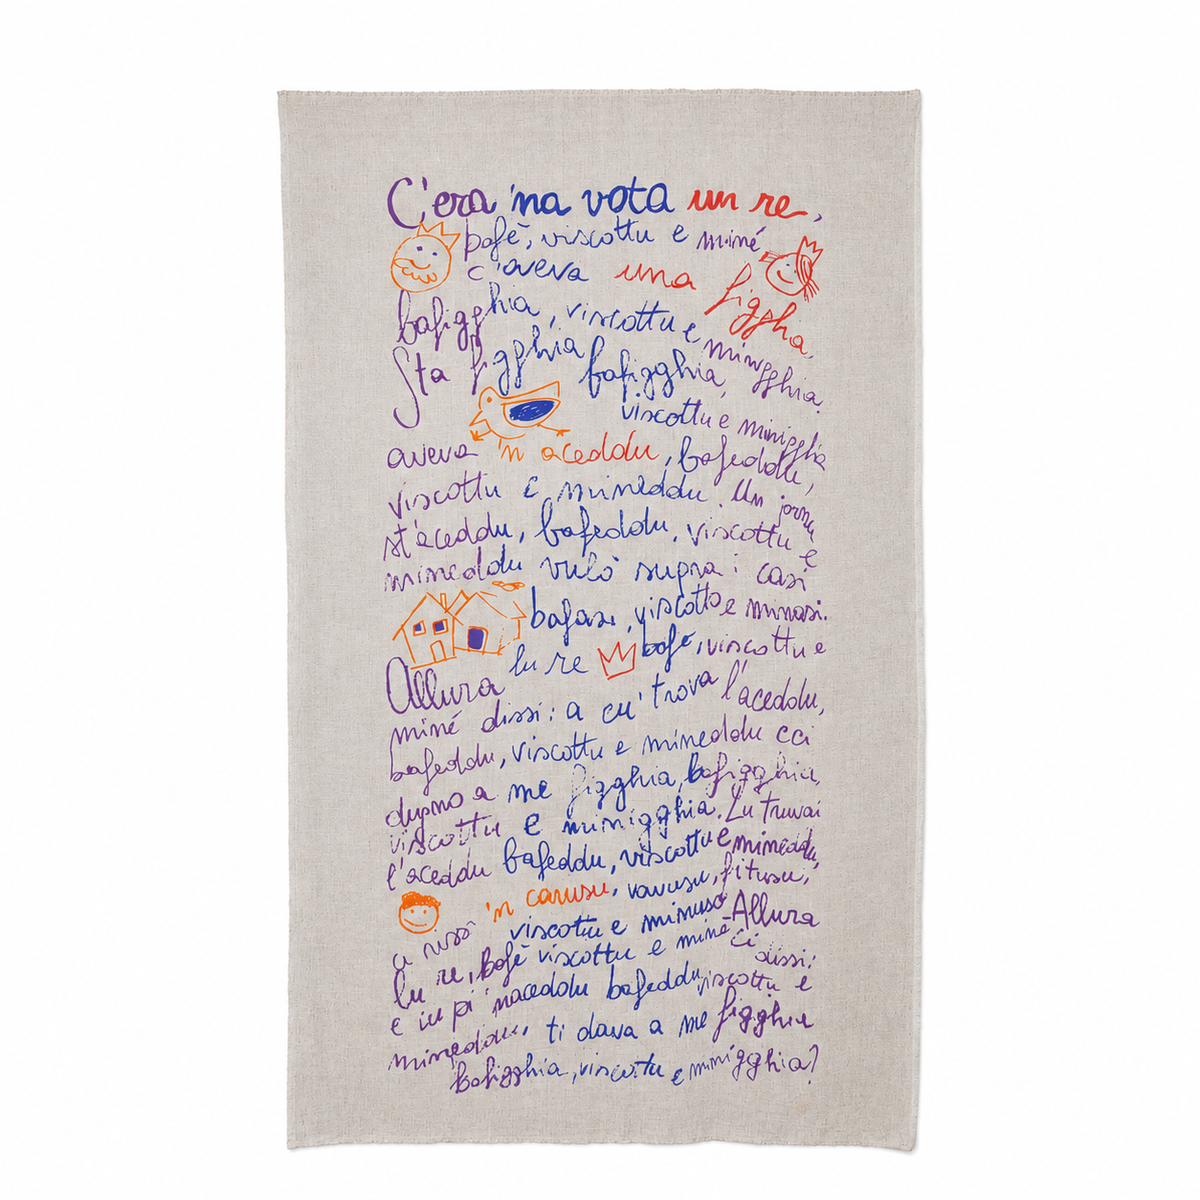 C'era 'na vota un re,
bafè, viscottu e miné
c'aveva una figghia,
bafigghia, viscottu e minigghia.
Sta figghia bafigghia,
viscottu e minigghia
aveva 'n aceddu, bafeddu,
viscottu e mineddu. Un jornu
st'aceddu, bafeddu, viscottu e
mineddu vulò supra i casi
bafasi, viscotto e minasi.
Allura lu re bafè, viscottu e
miné dissi: a cu' trova l'aceddu,
bafeddu, viscottu e mineddu cci
dugno a me figghia, bafigghia,
viscottu e minigghia. Lu truvai
l'aceddu bafeddu, viscottu e mineddu,
'n carusu, vavusu, fitusu,
viscottu e minuso - Allura
lu re, bafè viscottu e miné ci dissi:
e iu pi 'naceddu bafeddu, viscottu e
mineddu, ti dava a me figghia
bafigghia, viscottu e minigghia?